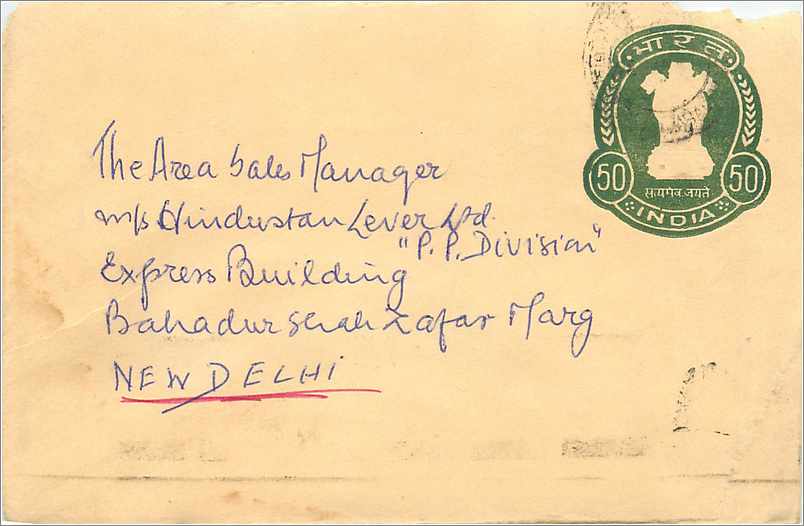 भारत
सत्यमेव जयते
50 50
INDIA
The Area Sales Manager
M/s Hindustan Lever Ltd.
"P.P. Division"
Express Building
Bahadur Shah Zafar Marg
NEW DELHI